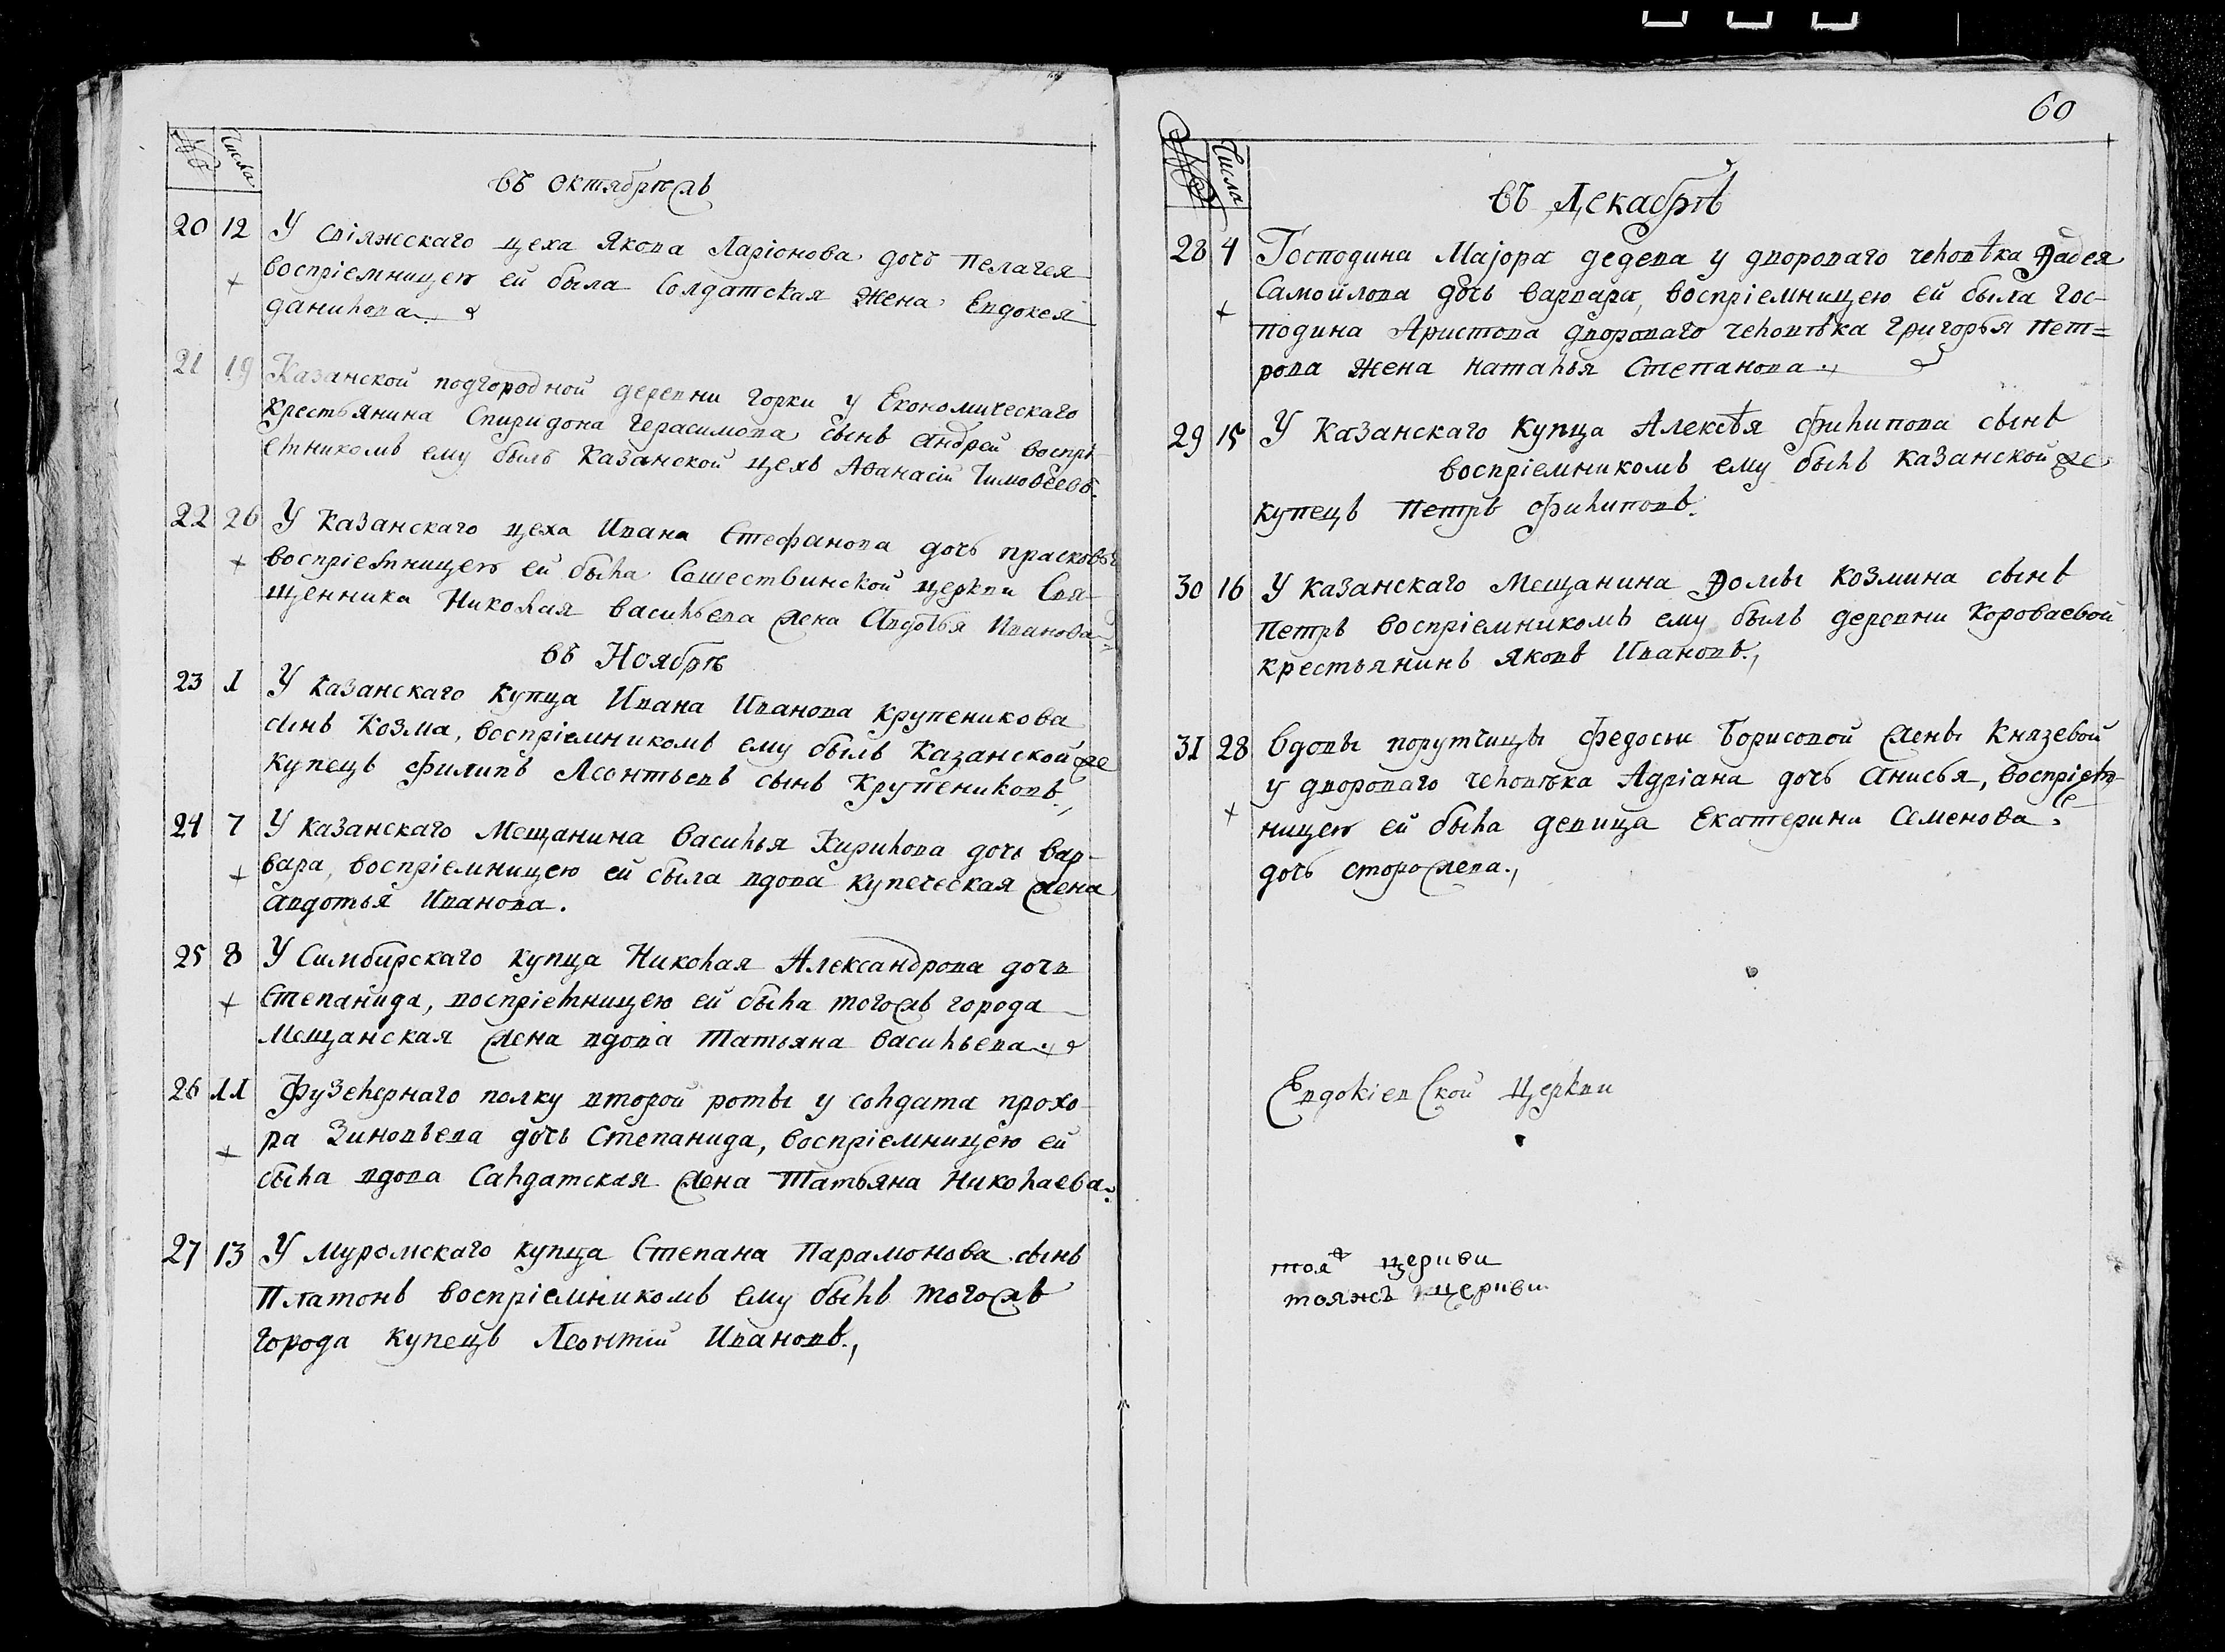 №
Числа
въ октябрѣжъ
20 12 У свіяжскаго цеха Якова Ларіонова дочь Пелагея
воспріемницею ей была Солдатская жена Евдокея
Данилова
21 19 Казанской подгородной деревни горки у Економическаго
Крестьянина Спиридона Герасимова сынъ Андрей воспрі-
емникомъ ему былъ Казанской цехъ Аѳанасіи Тимоѳеевъ.
22 26 У Казанскаго цеха Ивана Стефанова дочь прасковья
воспріемницею ей была Сошественской церкви Свя-
щенника Николая васильева жена Авдотья Иванова
въ Ноябрѣ
23 1 У Казанскаго купца Ивана Иванова Крупеникова
сынъ Козма, воспріемникомъ ему былъ Казанской же
купецъ Филипъ Леонтьевъ сынъ Крупениковъ.,
24 7 У казанскаго Мещанина васильья Кирилова дочь вар-
вара, воспріемницею ей была вдова купеческая жена
авдотья Иванова.
25 8 У Симбирскаго купца Николая Александрова дочь
Степанида, воспріемницею ей была тогожъ города
Мещанская жена вдова Татьяна васильева.,
26 11 Фузелернаго полку второй роты у солдата прохо-
ра Зиновьева дочь Степанида, воспріемницею ей
была вдова Салдатская жена Татьяна Николаева.
27 13 У муромскаго купца Степана Парамонова сынъ
Платонъ воспріемникомъ ему былъ тогожъ
города купецъ Леонтіи Ивановъ.,
60
№
Числа
въ Декабрѣ
28 4 Господина Маіора дедева у двороваго человѣка Ѳадея
Самойлова дочь варвара, воспріемницею ей была гос-
подина Аристова двороваго человѣка григорья пет=
рова жена наталья Степанова.,
29 15 У Казанскаго Купца Алексѣя филипова сынъ
воспріемникомъ ему былъ казанской же
купецъ Петръ филиповъ.
30 16 У казанскаго Мещанина Ѳомы Козмина сынъ
Петръ воспріемникомъ ему былъ деревни Короваевой
крестьянинъ яковъ Ивановъ.,
31 28 Вдовы порутчицы федосьи Борисовой жены Князевой
у двороваго человѣка Адріана дочь Анисья, воспріем-
ницею ей была девица Екатерина Семенова
дочь сторожева.,
Евдокіевской Церкви
тоя церкви
тояжъ церкви